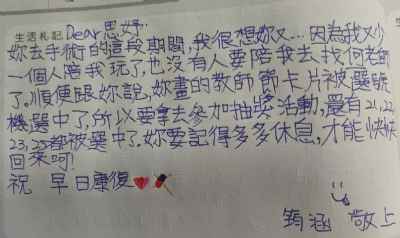 生活札記 Dear思妤：
妳去手術的這段期間，我很想妳ㄡ...因為我又少
一個人陪我玩了，也沒有人要陪我去找何老師
了。順便跟妳說，妳畫的教師節卡片被選號
機選中了所以要拿去參加抽獎活動，還有21,22,
23,25都被選中了。妳要記得多多休息，才能快快
回來呵!
祝 早日康復
筠涵 敬上